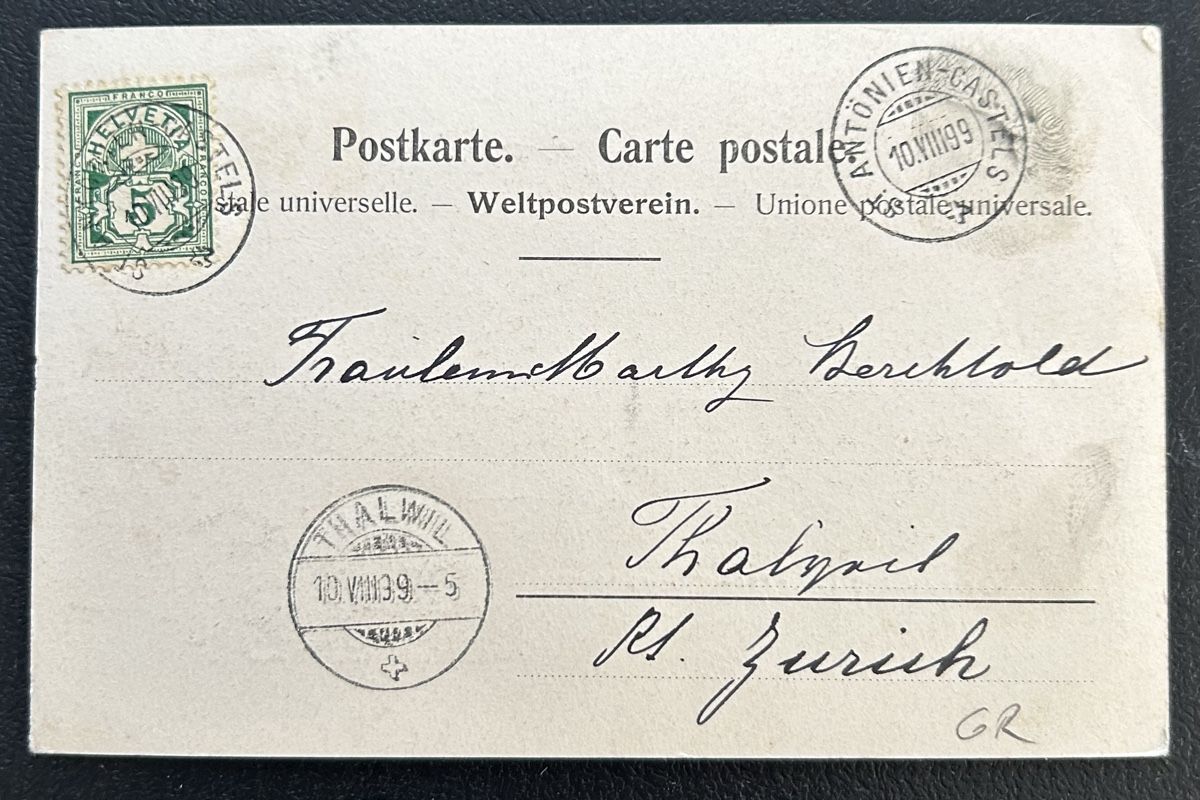 FRANCO
HELVETIA
FRANCO
FRANCO
5
TELS
ST. ANTÖNIEN-CASTELS
10.VIII99
Postkarte. — Carte postale.
stale universelle. — Weltpostverein. — Unione postale universale.
Fräulein Marthy Berchtold
THALWIL
10.VIII99-5
Thalwil
Kt. Zürich
GR